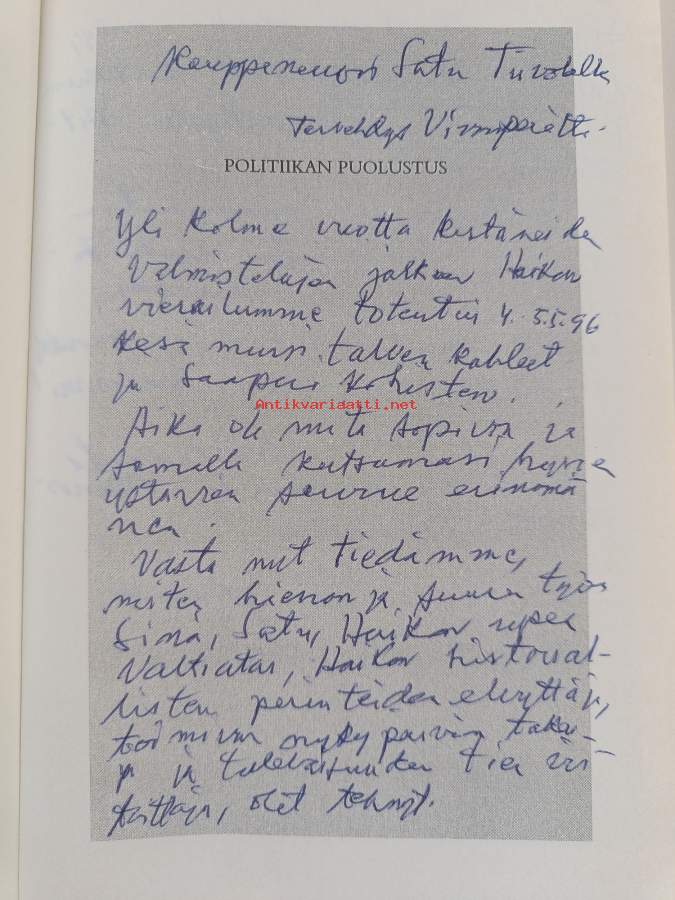 Kauppaneuvos Satu Tiivolalle
Tervehdys Vironperältä.
POLITIIKAN PUOLUSTUS
Yli kolme vuotta kestäneiden
valmistelujen jälkeen Haikon
vierailumme toteutui 4.-5.5.96
Kesä mursi talven kahleet
ja saapui kohisten.
Antikvariaatti.net
Aika oli mitä sopivin ja
samalla kutsumasi hyvien
ystävien seurue erinomai
nen.
Vasta nyt tiedämme,
miten hienon ja suuren työn
Sinä, Satu, Haikon upea
Valtiatar, Haikon historial-
listen perinteiden elvyttäjä,
toimivan nykypäivän takaa-
ja ja tulevaisuuden tien vii-
toittaja, olet tehnyt.